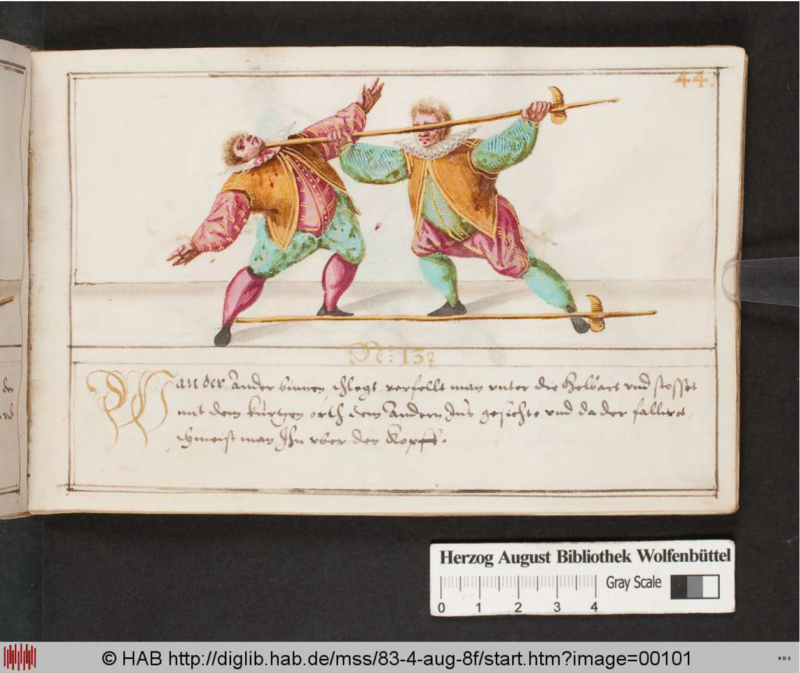 44.
N: 13
Wan der Ander binnen schlegt verfellt man vnter die Helbart vnd stosset
mit dem kurtzen orth dem Andern Ins gesichte vnd da der
man Ihn vber den Kopff.
der
Herzog August Bibliothek Wolfenbüttel
Gray Scale
0 1 2 3 4
© HAB http://diglib.hab.de/mss/83-4-aug-8f/start.htm?image=00101